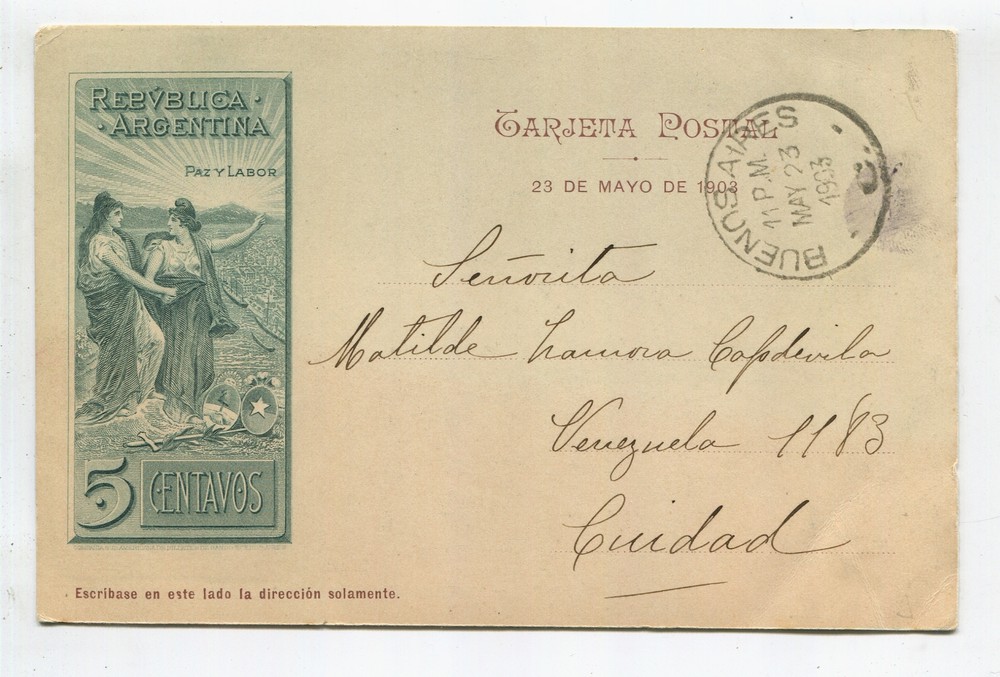 REPVBLICA ·
· ARGENTINA
PAZ Y LABOR
5 CENTAVOS
TARJETA POSTAL
23 DE MAYO DE 1903
BUENOS AIRES
11 P.M.
MAY 23
1903
Señorita
Matilde Zamora Capdevila
Venezuela 1183
Cuidad
Escribase en este lado la dirección solamente.